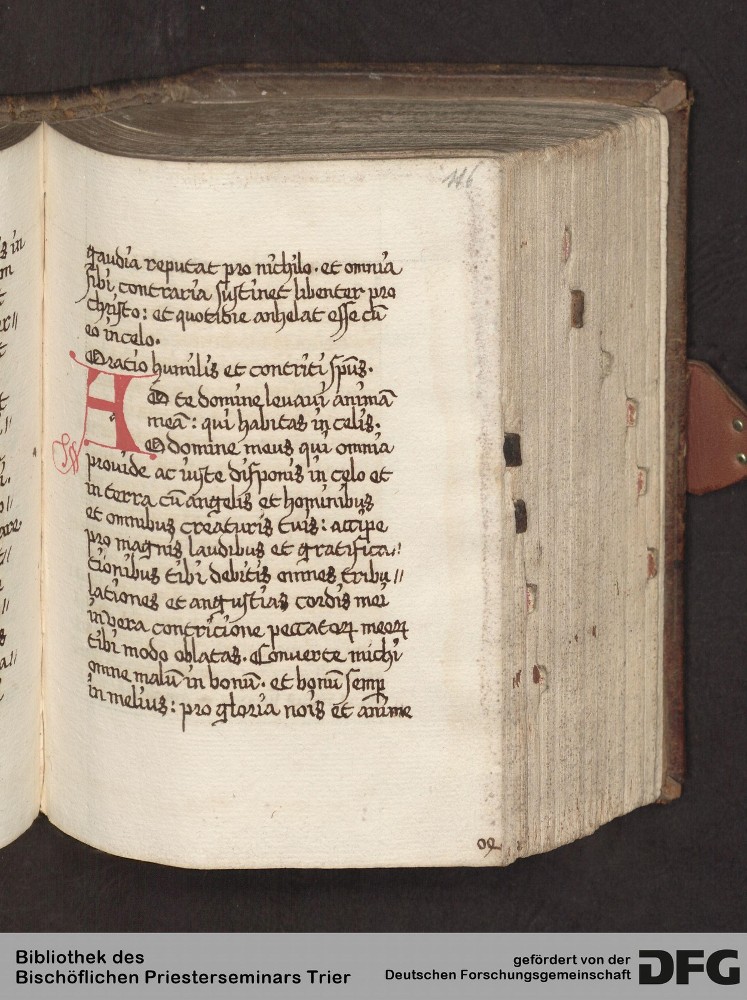 116
gaudia reputat pro nichilo. et omnia
sibi contraria sustinet libenter pro
christo: et quotidie anhelat esse cū
eo in celo.
Oratio humilis et contriti sp̄us.
AD te domine levavi animā
meā: qui habitas in celis.
O domine meus qui omnia
provide ac iuste disponis in celo et
in terra cū angelis et hominibus
et omnibus creaturis tuis: accipe
pro magnis laudibus et gratifica//
tionibus tibi debitis omnes tribu//
lationes et angustias cordis mei
in vera contricione peccatoꝝ meoꝝ
tibi modo oblatas. Converte michi
omne malū in bonū. et bonū semꝑ
in melius: pro gloria nōis et anime
Bibliothek des
Bischöflichen Priesterseminars Trier
gefördert von der
Deutschen Forschungsgemeinschaft
DFG